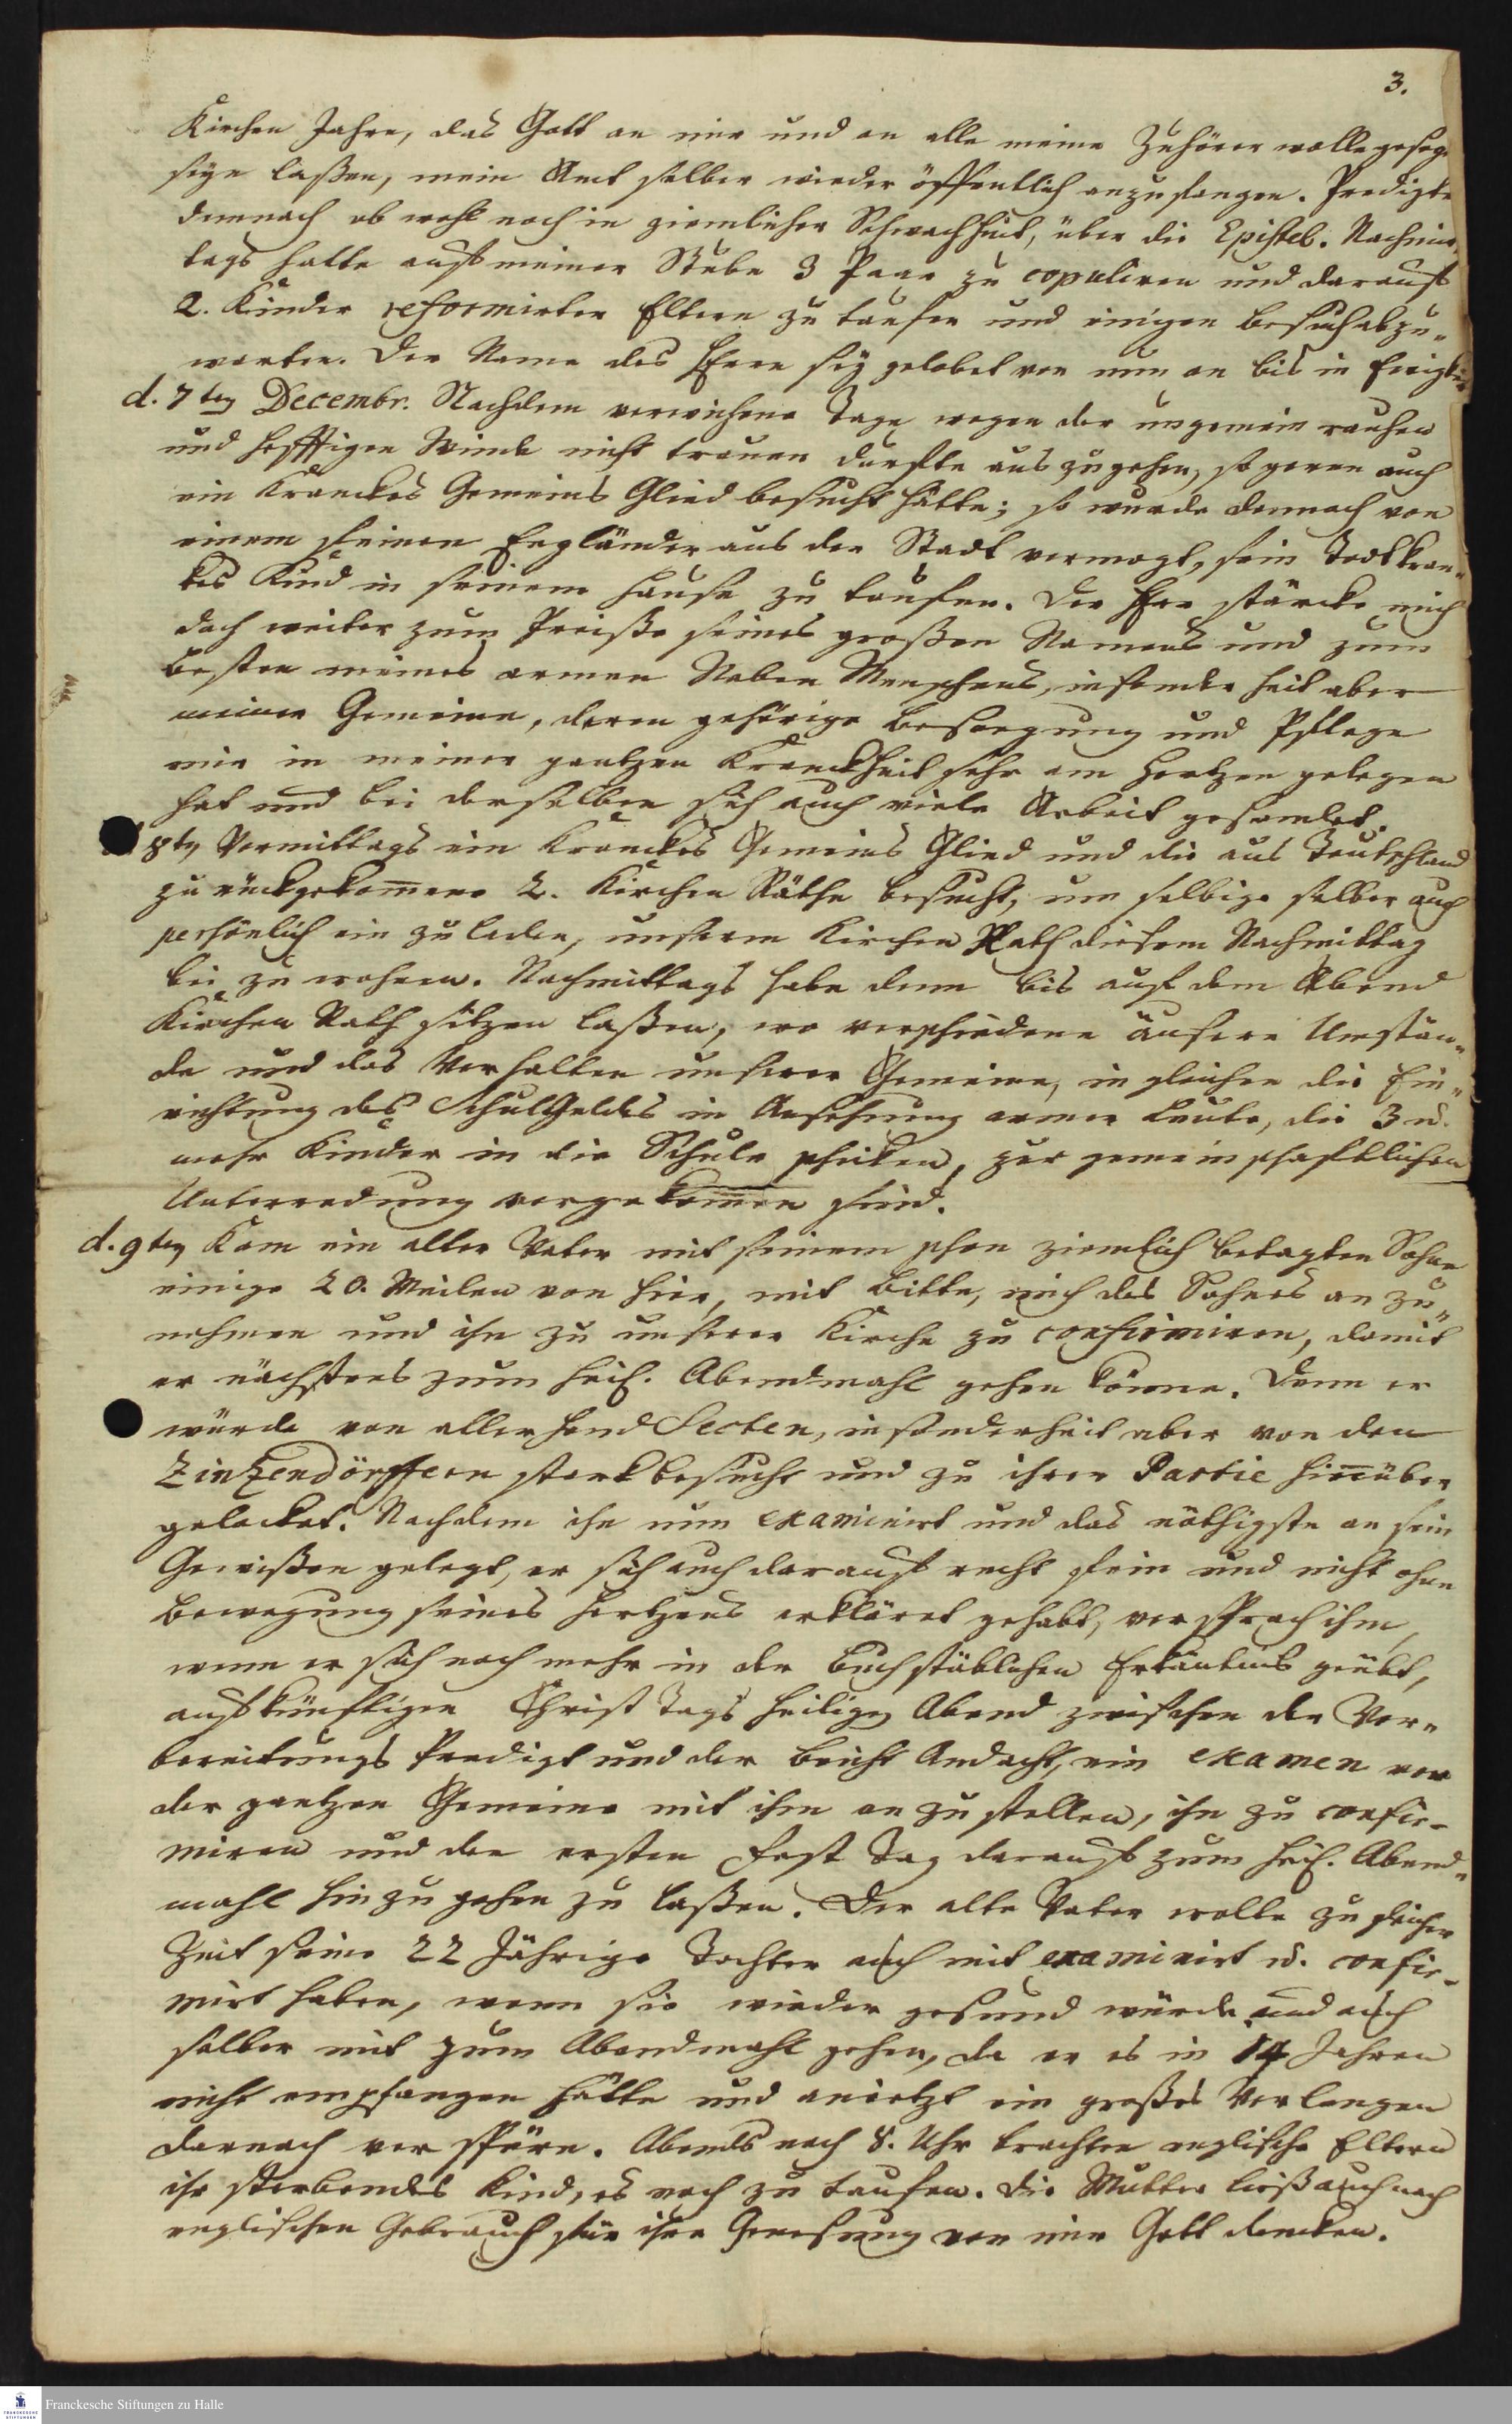 3.
Kirchen Jahre, das Gott an mir und an alle meine Zuhörer wolle geseg
seyn laßen, mein Amt selber wieder öffentlich anzufangen. Predigte
demnach ob wohl noch in ziemlicher Schwachheit, über die Epistel. Nachmit
tags hatte auf meiner Stube 3 Paar zu copuliren und darauf
2. Kinder reformirter Eltern zu taufen und einigen Besuch abzu-
warten. Der Name des Herrn sey gelobet von nun an bis in Ewigkei
d. 7ten Decembr. Nachdem verwichene Tage wegen der ungemein rauhen
und hefftigen Winde nicht trauen durfte auszugehen, so gerne auch
ein kranckes Gemeins Glied besucht hätte; so wurde dennoch von
einem feinen Engländer aus der Stadt vermogt, sein Todtkran-
kes Kind in seinem Hause zu taufen. Der Herr stärcke mich
doch weiter zum Preiße seines großen Namens und zum
Besten meines armen Neben Menschens, insonderheit aber
meiner Gemeine, deren gehörige Besorgung und Pflege
mir in meiner gantzen Kranckheit sehr am Hertzen gelegen
hat und bei derselben sich auch viele Arbeit gesamlet.
8ten Vormittags ein kranckes Gemeins Glied und die aus Teutschland
zurückgekommene 2. Kirchen Räthe besucht, um selbige selber auch
persönlich ein zu laden, unserm Kirchen Rath diesem Nachmittag
bei zu wohnen. Nachmittags habe denn bis auf den Abend
Kirchen Rath sitzen laßen, wo verschiedene äusere Umstän-
de und das Verhalten unserer Gemeine, in gleichen die Ein-
richtung des SchulGeldes in Ansehung armer Leute, die 3 u.
mehr Kinder in die Schule schicken, zur gemeinschaftlichen
Unterredung vorgekommen sind.
d. 9ten Kam ein alter Vater mit seinem schon ziemlich betagten Sohne
einige 20. Meilen von hier, mit Bitte, mich des Sohnes an zu-
nehmen und ihn zu unserer Kirche zu confirmiren, damit
er nächstens zum heil. Abendmahl gehen könne. Denn er
würde von allerhand Secten, insonderheit aber von den
Zinzendörffern starck besucht und zu ihrer Partie hinüber
gelocket. Nachdem ihn nun examinirt und das nöthigste an sein
Gewißen gelegt, er sich auch darauf recht fein und nicht ohne
Bewegung seines Hertzens erkläret gehabt, versprach ihm,
wenn er sich noch mehr in der buchstäblichen Erkäntnis geübt,
auf künftigen Christ Tags heiligen Abend zwischen der Vor-
bereitungs Predigt und der Beicht Andacht, ein examen vor
der gantzen Gemeine mit ihm an zu stellen, ihn zu confir-
miren und den ersten Fest Tag darauf zum heil. Abend-
mahl hinzu gehen zu laßen. Der alte Vater wolte zu gleicher
Zeit seine 22 Jährige Tochter auch mit examinirt u. confir-
mirt haben, wenn sie wieder gesund würde und auch
selber mit zum Abendmahl gehen, da er es in 14 Jahren
nicht empfangen hätte und anietzt ein großes Verlangen
darnach verspüre. Abends nach 8. Uhr brachten englische Eltern
ihr sterbendes Kind, es noch zu taufen. Die Mutter ließ auch nach
englischen Gebrauch für ihre Genesung von mir Gott dancken.
Franckesche Stiftungen zu Halle